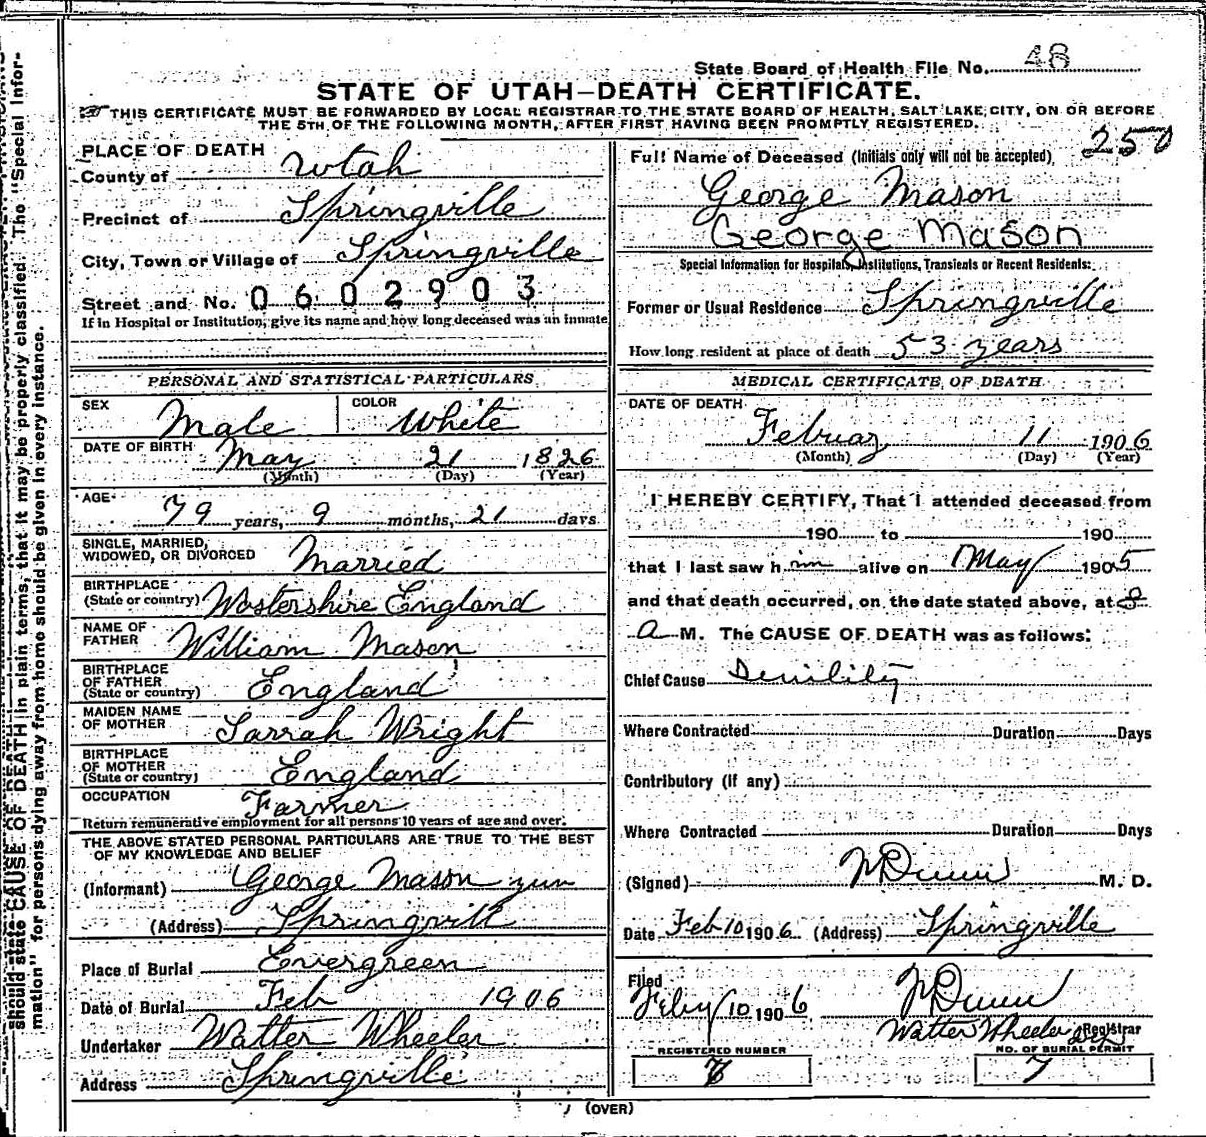 State Board of Health File No. 48
STATE OF UTAH—DEATH CERTIFICATE.
THIS CERTIFICATE MUST BE FORWARDED BY LOCAL REGISTRAR TO THE STATE BOARD OF HEALTH, SALT LAKE CITY, ON OR BEFORE
THE 5TH OF THE FOLLOWING MONTH, AFTER FIRST HAVING BEEN PROMPTLY REGISTERED.
PLACE OF DEATH
County of Utah
Precinct of Springville
City, Town or Village of Springville
Street and No. 0602903
If in Hospital or Institution, give its name and how long deceased was an inmate
PERSONAL AND STATISTICAL PARTICULARS
SEX Male COLOR White
DATE OF BIRTH May 21 1826
(Month) (Day) (Year)
AGE 79 years, 9 months, 21 days
SINGLE, MARRIED,
WIDOWED, OR DIVORCED Married
BIRTHPLACE
(State or country) Wostershire England
NAME OF
FATHER William Mason
BIRTHPLACE
OF FATHER
(State or country) England
MAIDEN NAME
OF MOTHER Sarrah Wright
BIRTHPLACE
OF MOTHER
(State or country) England
OCCUPATION Farmer
Return remunerative employment for all persons 10 years of age and over.
THE ABOVE STATED PERSONAL PARTICULARS ARE TRUE TO THE BEST
OF MY KNOWLEDGE AND BELIEF
(Informant) George Mason
(Address) Springvill
Place of Burial Evergreen
Date of Burial Feb 1906
Undertaker Watter Wheeler
Address Springville
250
Full Name of Deceased (Initials only will not be accepted)
George Mason
George Mason
Special Information for Hospitals, Institutions, Transients or Recent Residents:
Former or Usual Residence Springville
How long resident at place of death 53 years
MEDICAL CERTIFICATE OF DEATH
DATE OF DEATH
Febuary 11 1906
(Month) (Day) (Year)
I HEREBY CERTIFY, That I attended deceased from
190 to 190
that I last saw him alive on May 1905
and that death occurred, on the date stated above, at 8
a M. The CAUSE OF DEATH was as follows:
Chief Cause Senility
Where Contracted Duration Days
Contributory (if any)
Where Contracted Duration Days
(Signed) M. D.
Date Feb 10 1906 (Address) Springville
Filed
Feby 10 1906
Watter Wheeler Registrar
REGISTERED NUMBER NO. OF BURIAL PERMIT
7
(OVER)
should state CAUSE OF DEATH in plain terms, that it may be properly classified. The "Special Infor-
mation" for persons dying away from home should be given in every instance.